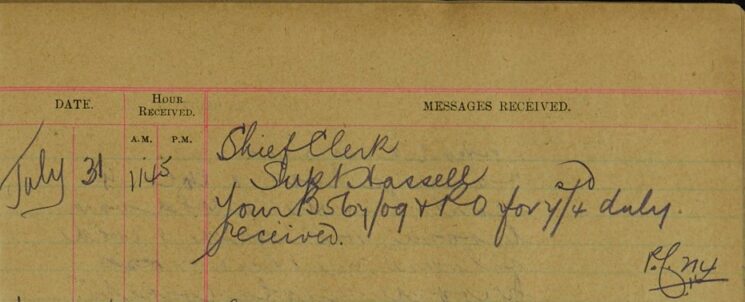 DATE. HOUR RECEIVED. MESSAGES RECEIVED.
A.M. P.M.
July 31 1145 Chief Clerk
Supt Hassell
Your B567/09 & PO for duly
received.
P.C.